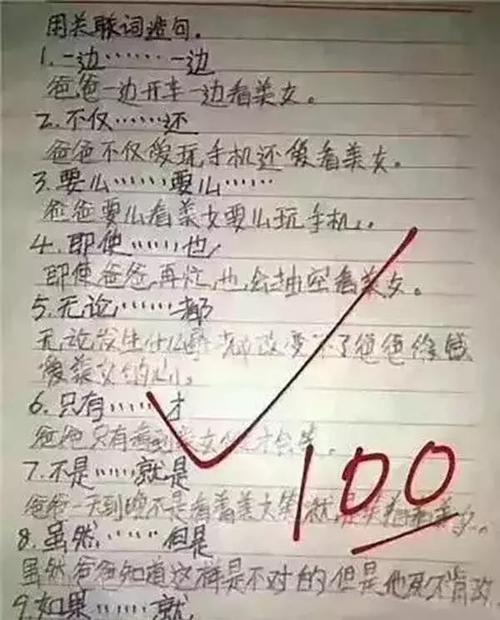 用关联词造句。
1.一边……一边
爸爸一边开车一边看美女。
2.不仅……还
爸爸不仅爱玩手机还爱看美女。
3.要么……要么……
爸爸要么看美女要么玩手机。
4.即使……也
即使爸爸再忙,也会抽空看美女。
5.无论……都
无论发生什么 都改变不了爸爸
爱美女的心。
6.只有……才
爸爸只有看到美女 才会笑。
7.不是……就是
爸爸一天到晚不是看着美 笑,就是
8.虽然……但是
虽然爸爸知道这样是不对的但是他 不肯改。
9.如果……就
100